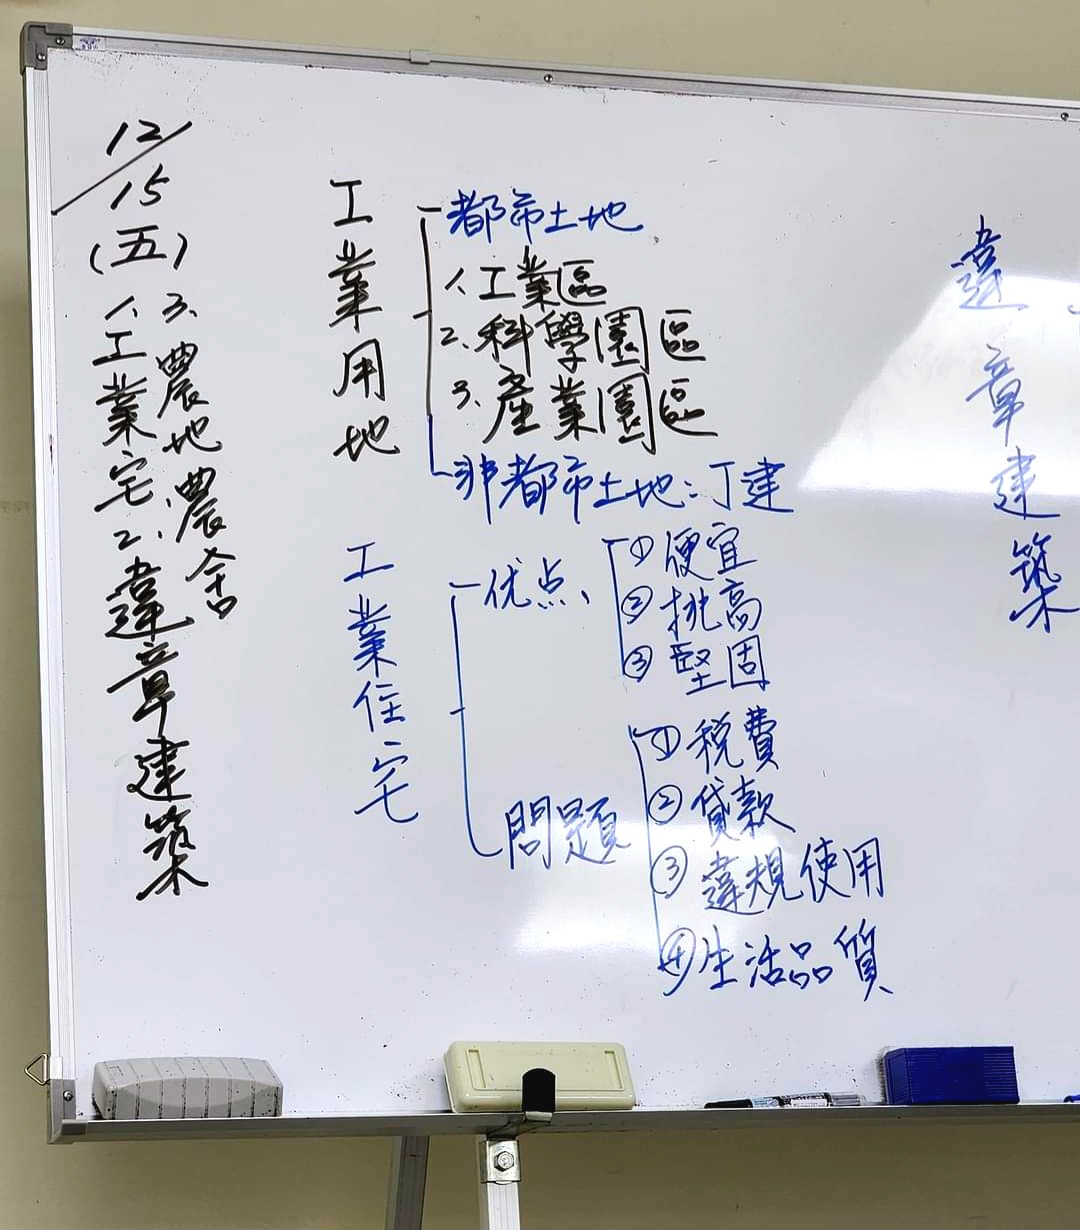 12/15
(五)
1.工業宅
2.違章建築
3.農地農舍
工業用地
都市土地
1.工業區
2.科學園區
3.產業園區
非都市土地:丁建
工業住宅
优点、
①便宜
②挑高
③堅固
問題
①稅費
②貸款
③違規使用
④生活品質
違章建築